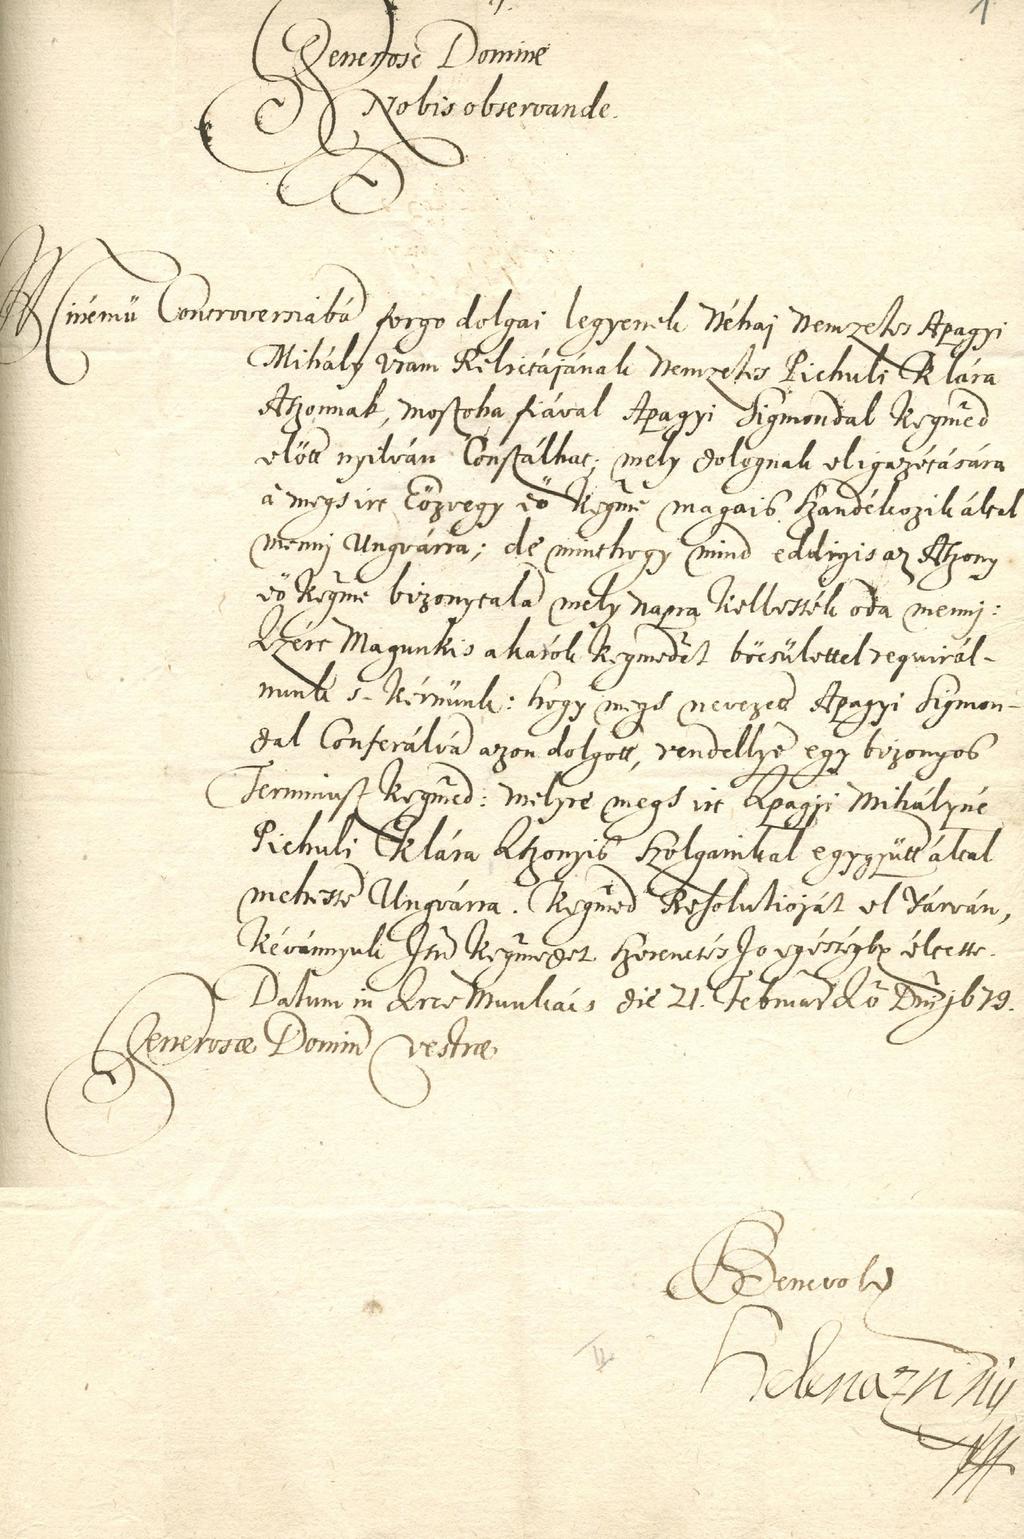 1
Generose Domine
Nobis observande.
Minémü Controversiába forgo dolgai legyenek Néhaj Nemzetes Apagyi
Mihály Vram Relictájának Nemzetes Pichuli Klára
Aszonnak, mostoha fiával Apagyi Sigmondal Kegmed
elött nyilván Constálhat; mely dolognak eligazétására
a megh irt Eözvegy eö Kegme magais Szandékozik által
menni Ungvárra; de minthogy mind eddigis az Aszony
eö Kegme bizonytala mely napra kellessék oda menni:
Azért Magunkis akarók Kegmedet böcsülettel requirál-
nunk s-kérnünk: hogy megh nevezett Apagyi Sigmon-
dal Conferálvá azon dolgott, rendellye egy bizonyos
Terminust Kegmed: melyre megh irt Apagyi Mihályné
Pichuli Klára Aszonyis Szolgainkal egygyütt által
mehesse Ungvárra. Kegmed Resolutioját el várván,
Kévánnyuk Istn Kegmedet Szerencsés Jo egésségbe éltesse.
Datum in Arce Munkács die 21. Februar Ao Dni 1679.
Generosae Domin Vestrae
Benevola
Helena Zriny